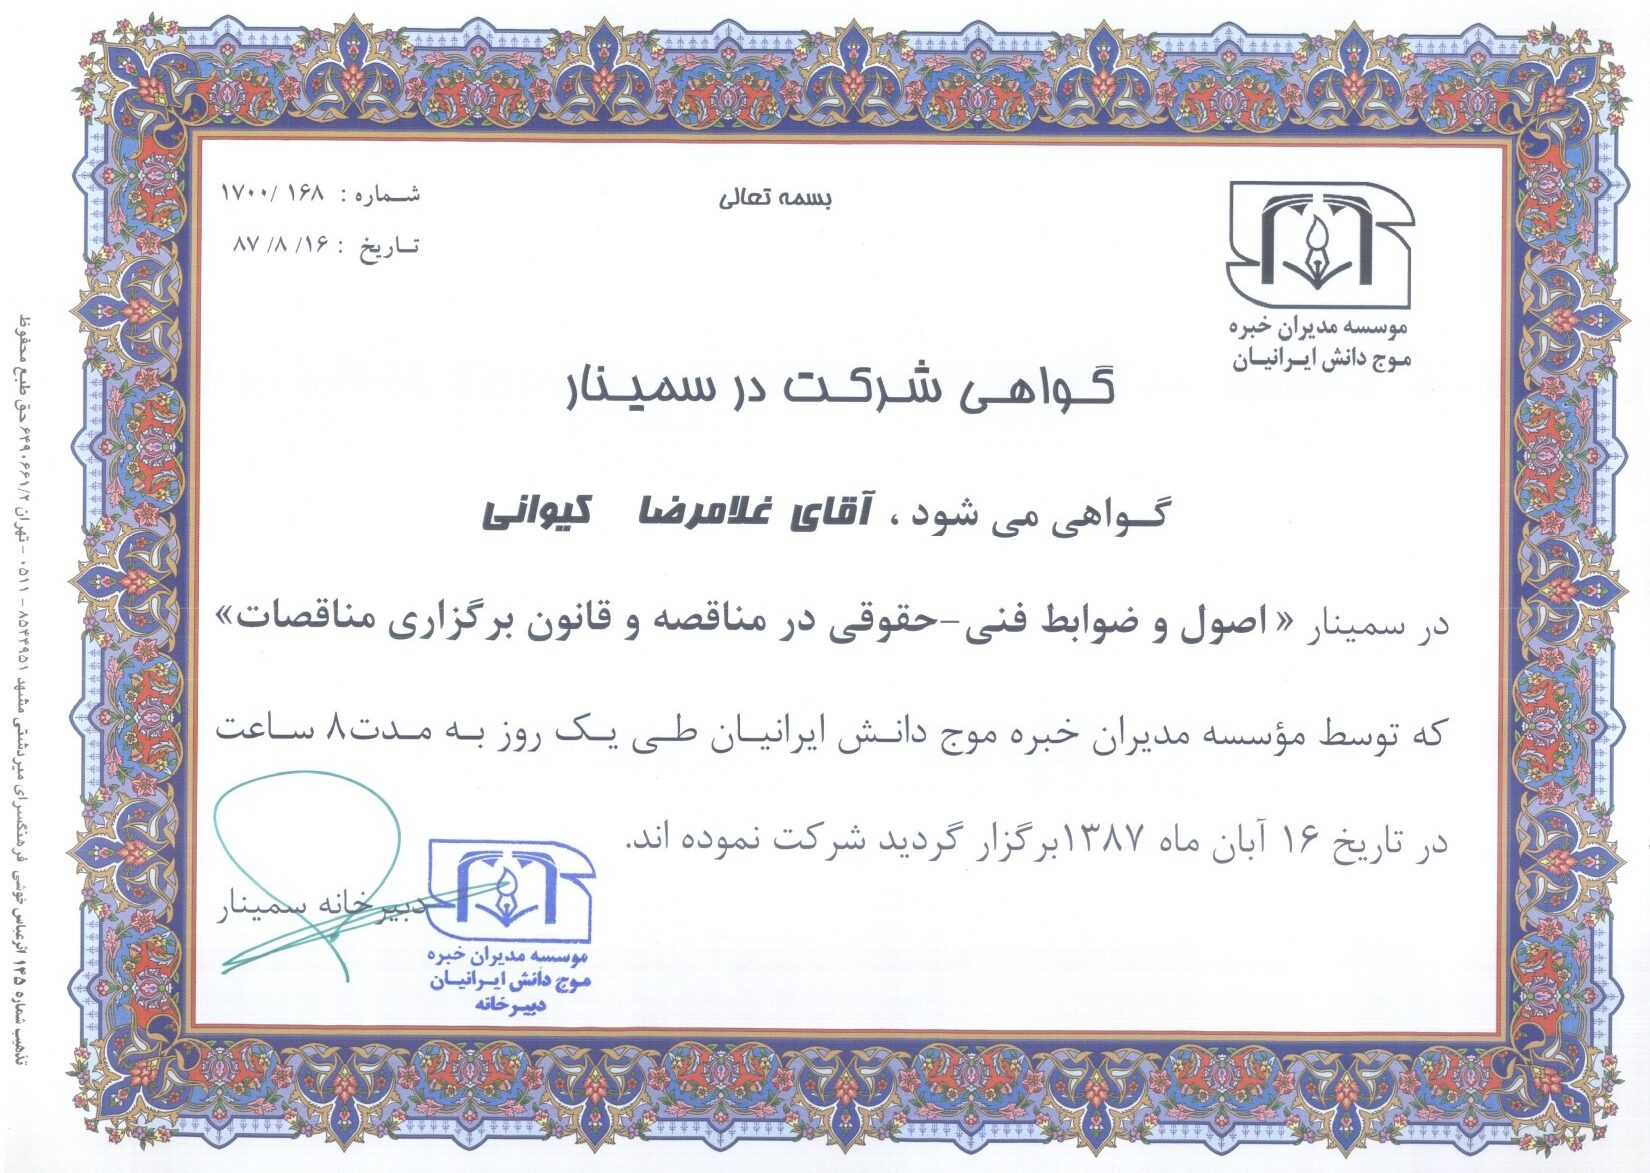 بسمه تعالی
شماره : ۱۶۸ /۱۷۰۰
تاریخ : ۱۶/ ۸/ ۸۷
موسسه مدیران خبره
موج دانش ایرانیان
گواهی شرکت در سمینار
گواهی می شود ، آقای غلامرضا کیوانی
در سمینار « اصول و ضوابط فنی-حقوقی در مناقصه و قانون برگزاری مناقصات»
که توسط مؤسسه مدیران خبره موج دانش ایرانیان طی یک روز به مدت۸ ساعت
در تاریخ ۱۶ آبان ماه ۱۳۸۷برگزار گردید شرکت نموده اند.
دبیرخانه سمینار
موسسه مدیران خبره
موج دانش ایرانیان
دبیرخانه
تذهیب شماره ۱۴۵ اثرعباس خوشی فرهنگسرای میردشتی مشهد ۸۵۴۴۹۵۱ - ۰۵۱۱ - تهران ۶۴۹۰۶۶۱/۲ حق طبع محفوظ